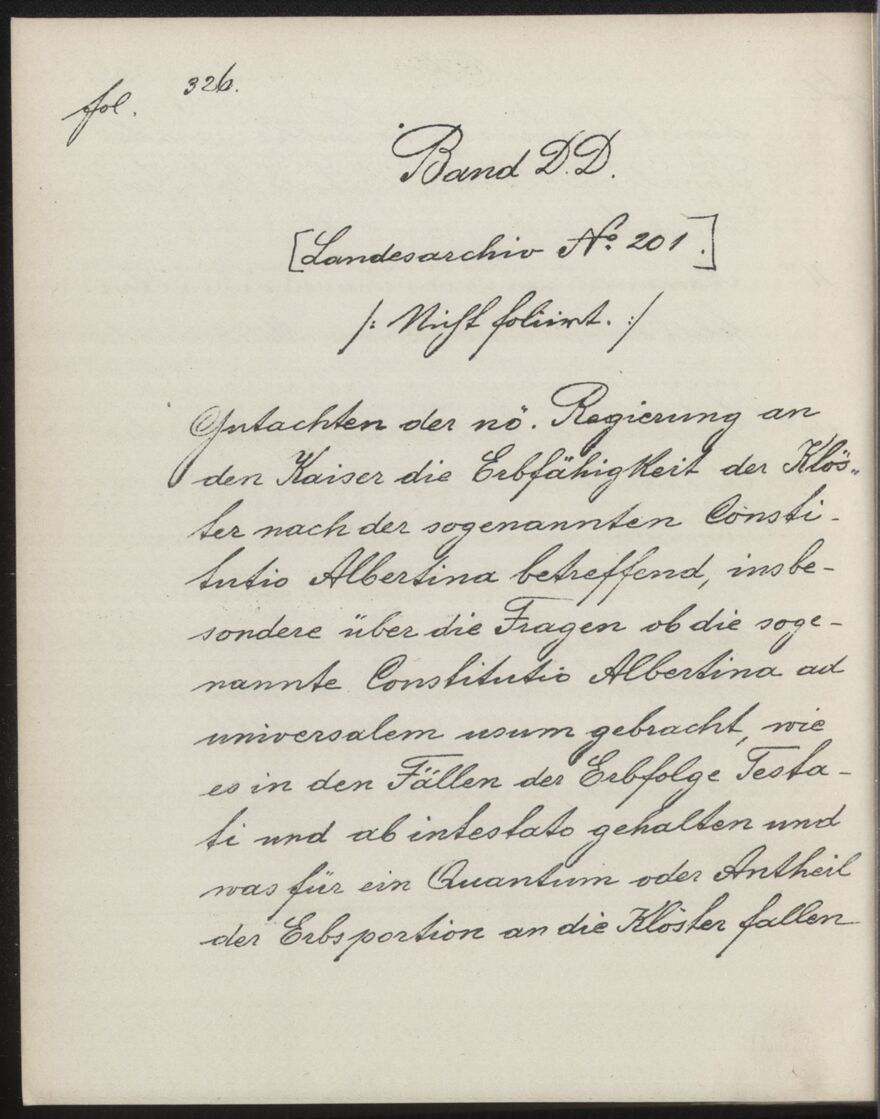 fol. 326.
Band D.D.
[Landesarchiv No. 201.]
/: Nicht foliirt. :/
Gutachten der nö. Regierung an
den Kaiser die Erbfähigkeit der Klös„
ter nach der sogenannten Consti-
tutio Albertina betreffend, insbe-
sondere über die Fragen ob die soge-
nannte Constitutio Albertina ad
universalem usum gebracht, wie
es in den Fällen der Erbfolge Testa-
ti und ab intestato gehalten und
was für ein Quantum oder Antheil
der Erbsportion an die Klöster fallen